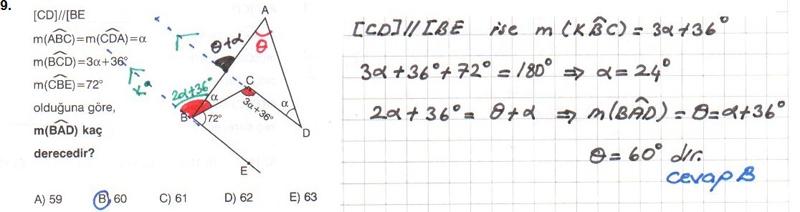 9.
[CD]//[BE
m(ABC)=m(CDA)=α
m(BCD)=3α+36°
m(CBE)=72°
olduğuna göre,
m(BAD) kaç
derecedir?
A
θ
θ+α
C
2α+36°
α
α
3α+36°
B
72°
D
E
α
A) 59 B) 60 C) 61 D) 62 E) 63
[CD]//[BE ise m(KBC) = 3α+36°
3α+36°+72°=180° ⇒ α=24°
2α+36° = θ+α ⇒ m(BAD)=θ=α+36°
θ=60° dır.
cevap B